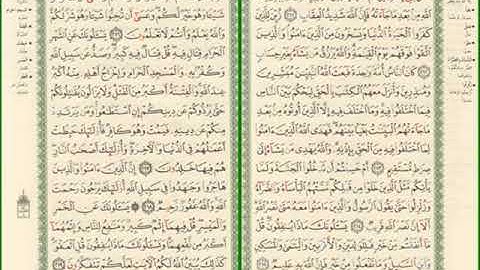 ٱللَّهِ مِنۢ بَعْدِ مَا جَآءَتْهُ فَإِنَّ ٱللَّهَ شَدِيدُ ٱلْعِقَابِ ٢١١ زُيِّنَ
لِلَّذِينَ كَفَرُوا۟ ٱلْحَيَوٰةُ ٱلدُّنْيَا وَيَسْخَرُونَ مِنَ ٱلَّذِينَ ءَامَنُوا۟ وَٱلَّذِينَ
ٱتَّقَوْا۟ فَوْقَهُمْ يَوْمَ ٱلْقِيَٰمَةِ وَٱللَّهُ يَرْزُقُ مَن يَشَآءُ بِغَيْرِ حِسَابٍ
٢١٢ كَانَ ٱلنَّاسُ أُمَّةً وَٰحِدَةً فَبَعَثَ ٱللَّهُ ٱلنَّبِيِّۦنَ مُبَشِّرِينَ
وَمُنذِرِينَ وَأَنزَلَ مَعَهُمُ ٱلْكِتَٰبَ بِٱلْحَقِّ لِيَحْكُمَ بَيْنَ ٱلنَّاسِ
فِيمَا ٱخْتَلَفُوا۟ فِيهِ وَمَا ٱخْتَلَفَ فِيهِ إِلَّا ٱلَّذِينَ أُوتُوهُ مِنۢ بَعْدِ
مَا جَآءَتْهُمُ ٱلْبَيِّنَٰتُ بَغْيًۢا بَيْنَهُمْ فَهَدَى ٱللَّهُ ٱلَّذِينَ ءَامَنُوا۟ لِمَا
ٱخْتَلَفُوا۟ فِيهِ مِنَ ٱلْحَقِّ بِإِذْنِهِۦ وَٱللَّهُ يَهْدِى مَن يَشَآءُ إِلَىٰ
صِرَٰطٍ مُّسْتَقِيمٍ ٢١٣ أَمْ حَسِبْتُمْ أَن تَدْخُلُوا۟ ٱلْجَنَّةَ وَلَمَّا
يَأْتِكُم مَّثَلُ ٱلَّذِينَ خَلَوْا۟ مِن قَبْلِكُم مَّسَّتْهُمُ ٱلْبَأْسَآءُ وَٱلضَّرَّآءُ
وَزُلْزِلُوا۟ حَتَّىٰ يَقُولَ ٱلرَّسُولُ وَٱلَّذِينَ ءَامَنُوا۟ مَعَهُۥ مَتَىٰ نَصْرُ ٱللَّهِ
أَلَآ إِنَّ نَصْرَ ٱللَّهِ قَرِيبٌ ٢١٤ يَسْـَٔلُونَكَ مَاذَا يُنفِقُونَ قُلْ مَآ
أَنفَقْتُم مِّنْ خَيْرٍ فَلِلْوَٰلِدَيْنِ وَٱلْأَقْرَبِينَ وَٱلْيَتَٰمَىٰ وَٱلْمَسَٰكِينِ
وَٱبْنِ ٱلسَّبِيلِ وَمَا تَفْعَلُوا۟ مِنْ خَيْرٍ فَإِنَّ ٱللَّهَ بِهِۦ عَلِيمٌ ٢١٥
شَيْـًٔا وَهُوَ خَيْرٌ لَّكُمْ وَعَسَىٰٓ أَن تُحِبُّوا۟ شَيْـًٔا وَهُوَ شَرٌّ لَّكُمْ
وَٱللَّهُ يَعْلَمُ وَأَنتُمْ لَا تَعْلَمُونَ ٢١٦ يَسْـَٔلُونَكَ عَنِ ٱلشَّهْرِ
ٱلْحَرَامِ قِتَالٍ فِيهِ قُلْ قِتَالٌ فِيهِ كَبِيرٌ وَصَدٌّ عَن سَبِيلِ ٱللَّهِ
وَكُفْرٌۢ بِهِۦ وَٱلْمَسْجِدِ ٱلْحَرَامِ وَإِخْرَاجُ أَهْلِهِۦ مِنْهُ أَكْبَرُ
عِندَ ٱللَّهِ وَٱلْفِتْنَةُ أَكْبَرُ مِنَ ٱلْقَتْلِ وَلَا يَزَالُونَ يُقَٰتِلُونَكُمْ
حَتَّىٰ يَرُدُّوكُمْ عَن دِينِكُمْ إِنِ ٱسْتَطَٰعُوا۟ وَمَن يَرْتَدِدْ
مِنكُمْ عَن دِينِهِۦ فَيَمُتْ وَهُوَ كَافِرٌ فَأُو۟لَٰٓئِكَ حَبِطَتْ
أَعْمَٰلُهُمْ فِى ٱلدُّنْيَا وَٱلْـَٔاخِرَةِ وَأُو۟لَٰٓئِكَ أَصْحَٰبُ ٱلنَّارِ
هُمْ فِيهَا خَٰلِدُونَ ٢١٧ إِنَّ ٱلَّذِينَ ءَامَنُوا۟ وَٱلَّذِينَ
هَاجَرُوا۟ وَجَٰهَدُوا۟ فِى سَبِيلِ ٱللَّهِ أُو۟لَٰٓئِكَ يَرْجُونَ رَحْمَتَ
ٱللَّهِ وَٱللَّهُ غَفُورٌ رَّحِيمٌ ٢١٨ يَسْـَٔلُونَكَ عَنِ ٱلْخَمْرِ
وَٱلْمَيْسِرِ قُلْ فِيهِمَآ إِثْمٌ كَبِيرٌ وَمَنَٰفِعُ لِلنَّاسِ وَإِثْمُهُمَآ
أَكْبَرُ مِن نَّفْعِهِمَا وَيَسْـَٔلُونَكَ مَاذَا يُنفِقُونَ قُلِ ٱلْعَفْوَ
كَذَٰلِكَ يُبَيِّنُ ٱللَّهُ لَكُمُ ٱلْـَٔايَٰتِ لَعَلَّكُمْ تَتَفَكَّرُونَ ٢١٩